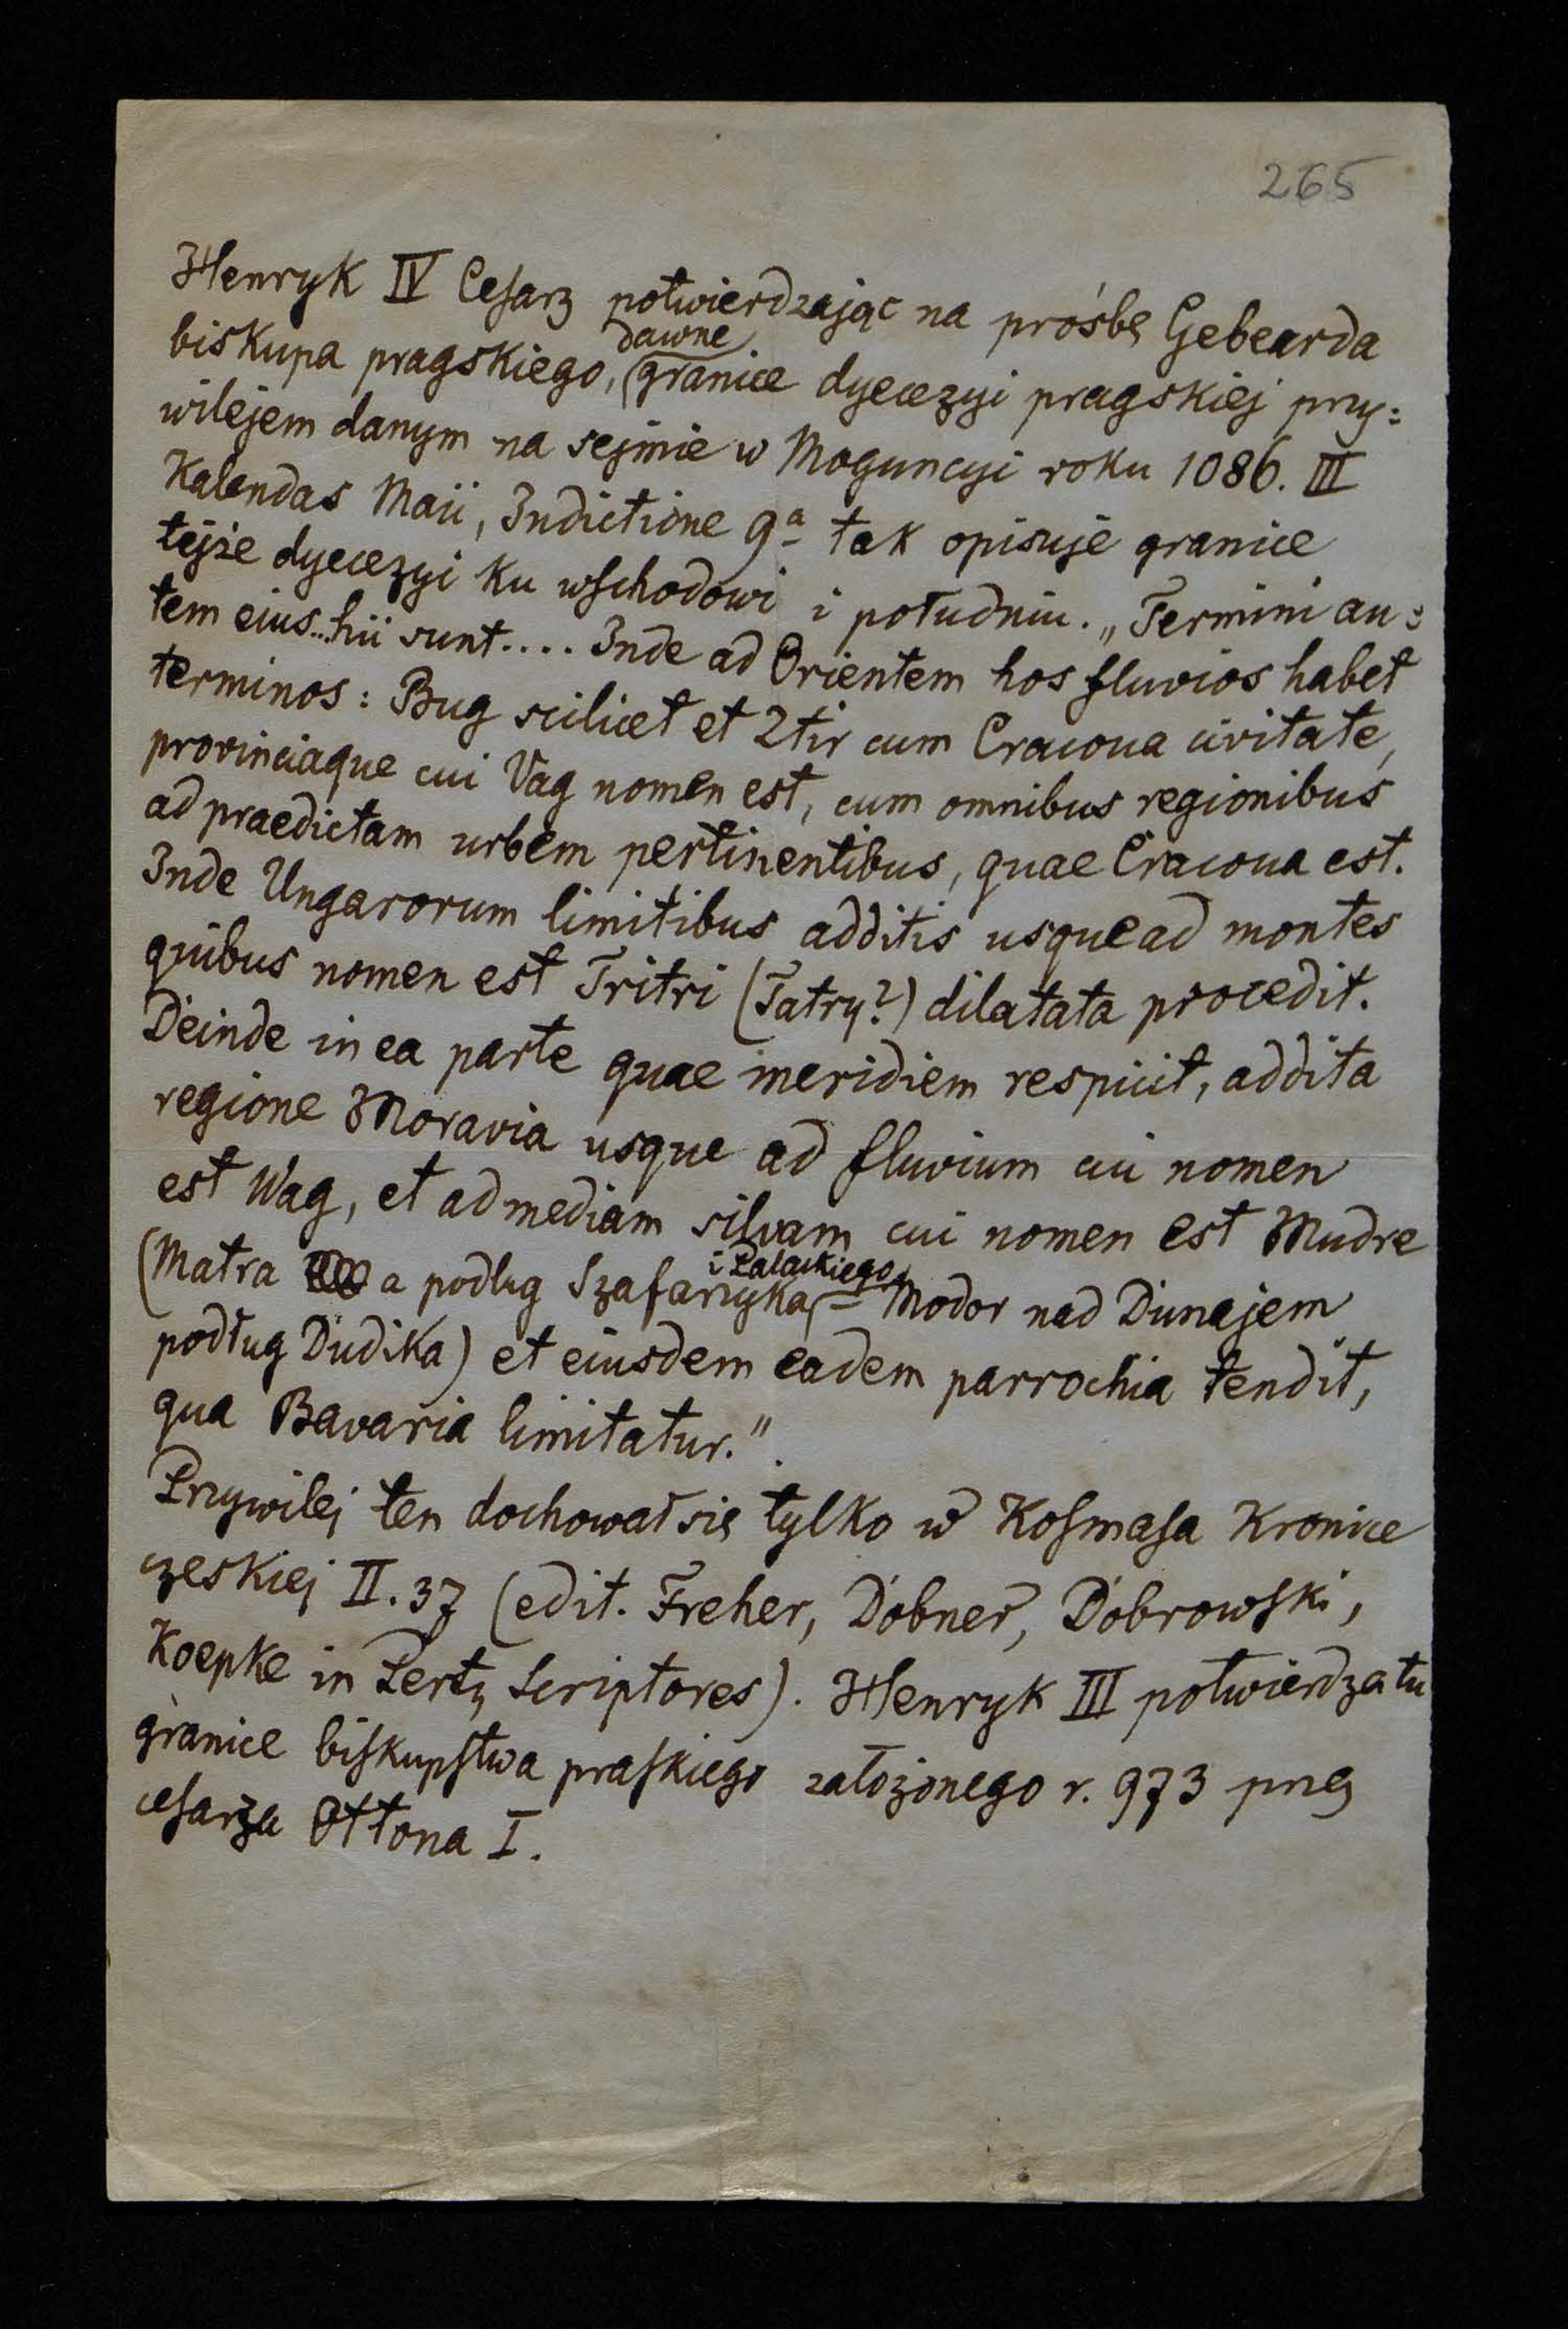 265
Henryk IV Cesarz potwierdzając na prośbę Gebearda
dawne
biskupa pragskiego, granice dyecezyi pragskiej przy=
wilejem danym na sejmie w Moguncyi roku 1086. III
Kalendas Maii, Indictione 9ª tak opisuje granice
tejże dyecezyi ku wschodowi i południu. „Termini au=
tem eius...hii sunt.... Inde ad Orientem hos fluvios habet
terminos: Bug scilicet et Ztir cum Cracoua civitate,
provinciaque cui Vag nomen est, cum omnibus regionibus
ad praedictam urbem pertinentibus, quae Cracoua est.
Inde Ungarorum limitibus additis usque ad montes
quibus nomen est Tritri (Tatry?) dilatata procedit.
Deinde in ea parte quae meridiem respicit, addita
regione Moravia usque ad fluvium cui nomen
est Wag, et ad mediam silvam cui nomen est Mudre
i Palackiego
(Matra a podług Szafarzyka, = Modor nad Dunajem
podług Dudika) et eiusdem eadem parrochia tendit,
qua Bavaria limitatur."
Przywilej ten dochował się tylko w Kosmasa Kronice
czeskiej II. 37 (edit. Freher, Dobner, Dobrowski,
Koepke in Pertz Scriptores). Henryk III potwierdza tu
granice biskupstwa praskiego założonego r. 973 przez
cesarza Ottona I.